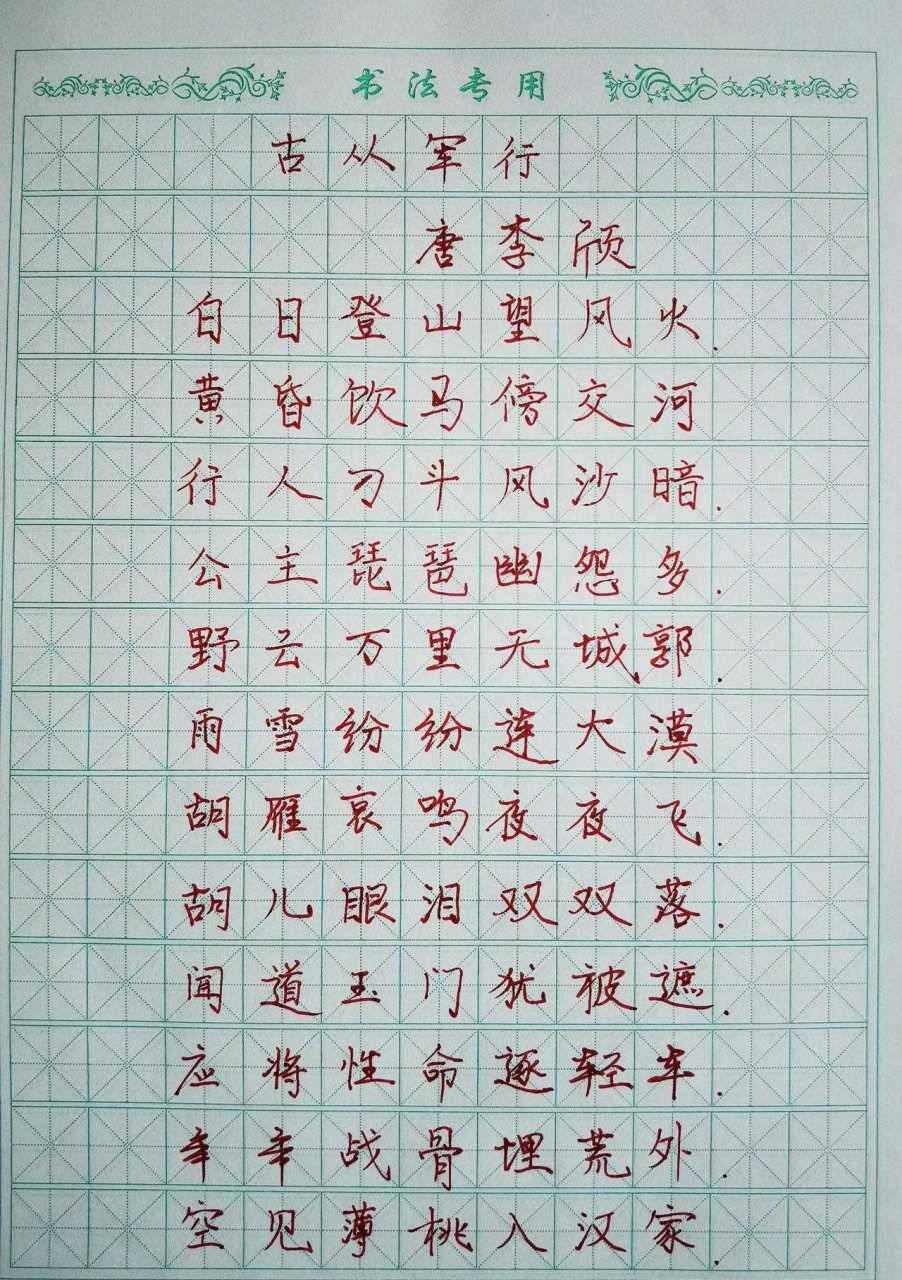 书法专用
古从军行
唐李颀
白日登山望风火.
黄昏饮马傍交河
行人刁斗风沙暗.
公主琵琶幽怨多.
野云万里无城郭.
雨雪纷纷连大漠
胡雁哀鸣夜夜飞.
胡儿眼泪双双落.
闻道玉门犹被遮.
应将性命逐轻车.
年年战骨埋荒外.
空见薄桃入汉家.